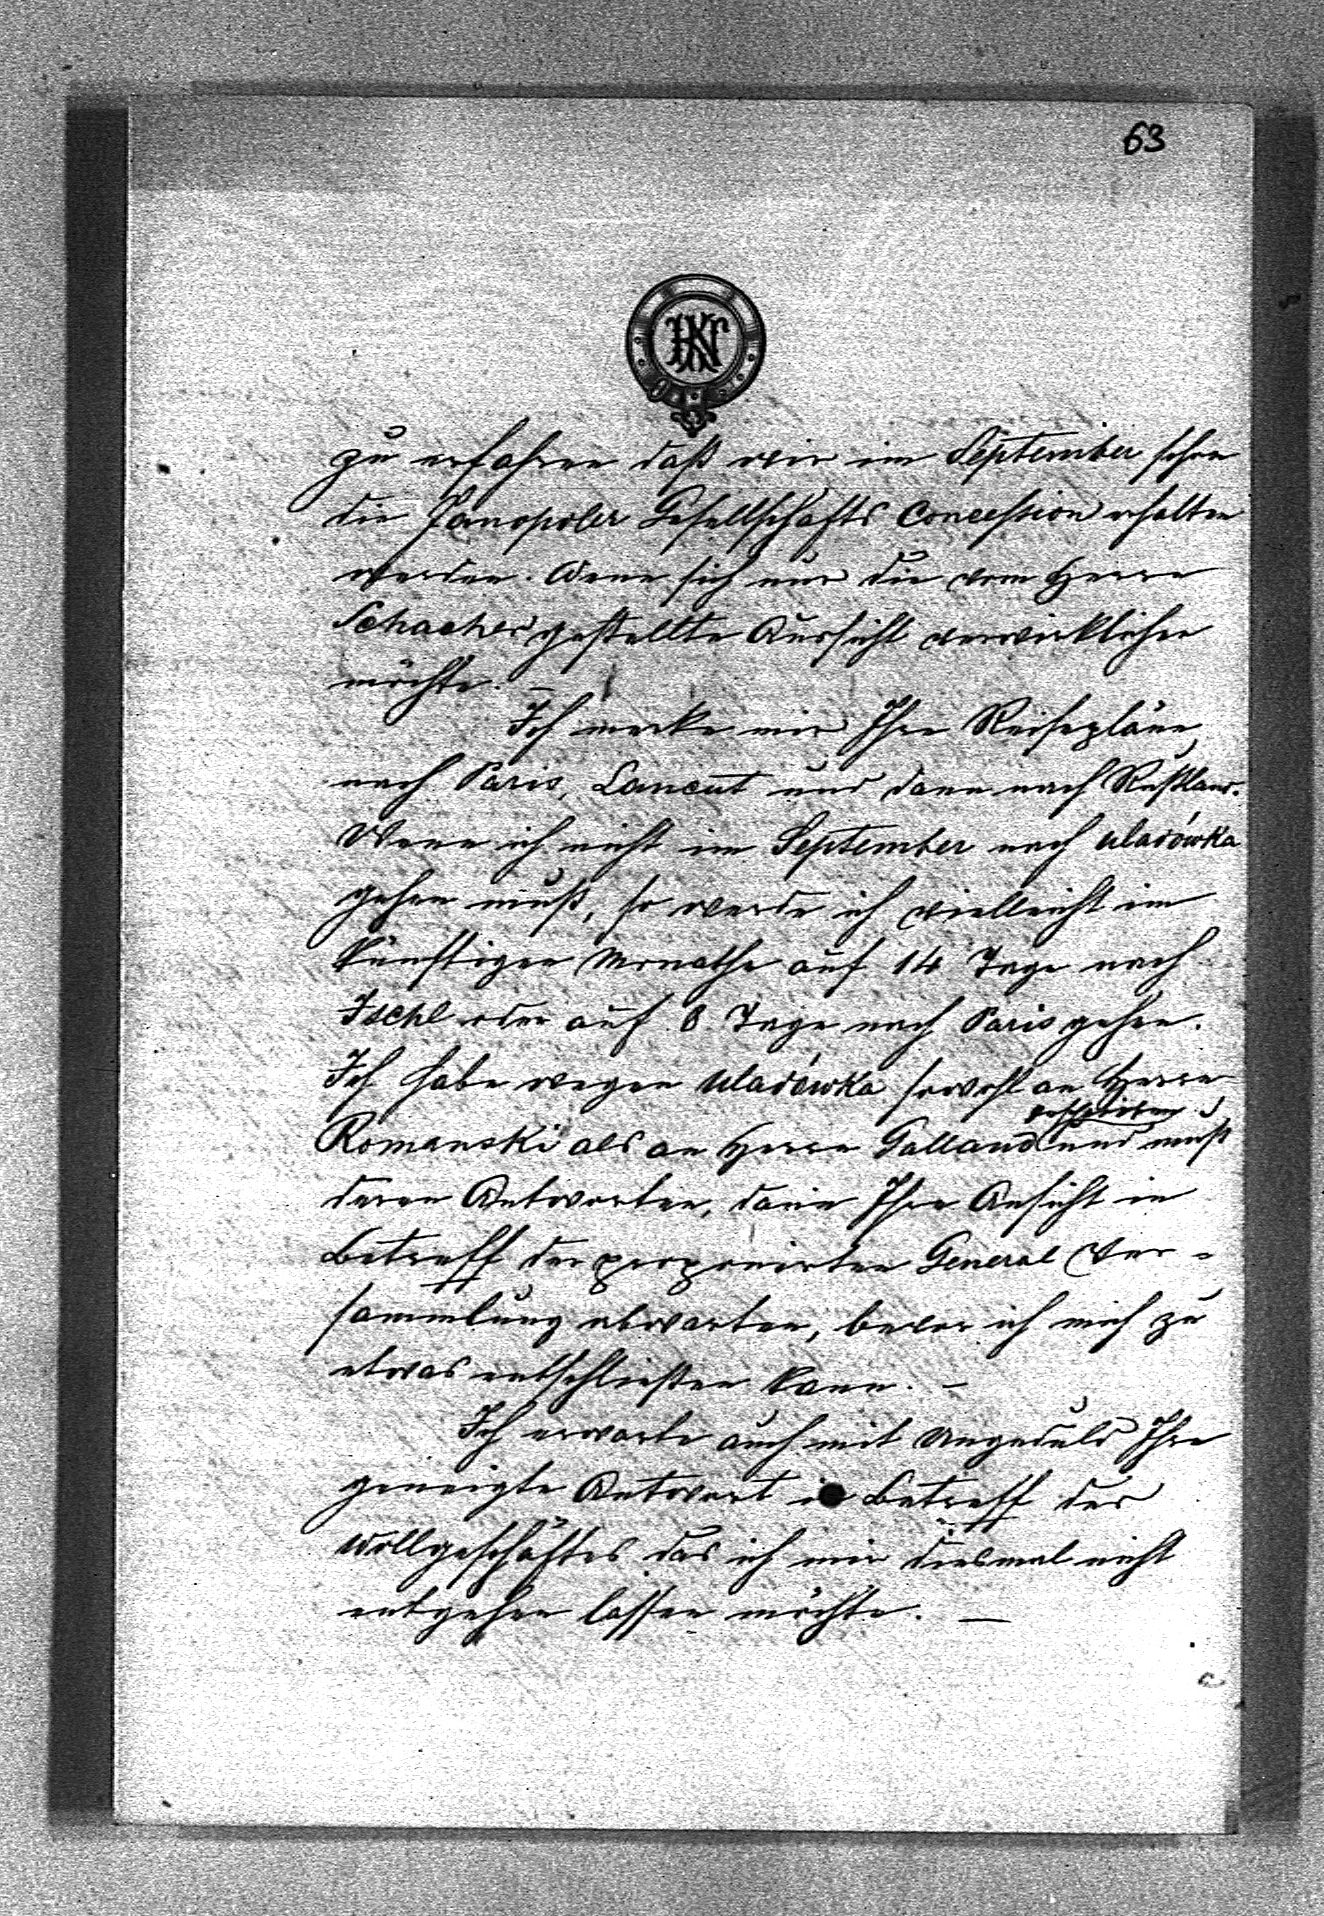 63
HN
zu erfahren daß wir im September schon
die Janopoler Gesellschafts Concession erhalten
werden. Wenn sich nur die vom Herrn
Schacher gestellte Aussicht verwirklichen
möchte. –
Ich merke mir Ihre Reisepläne
nach Paris, Lancut und dann nach Rußland.
Wenn ich nicht im September nach Uladówka
gehen muß, so werde ich vielleicht im
künftigen Monathe auf 14 Tage nach
Ischl oder auf 8 Tage nach Paris gehen.
Ich habe wegen Uladówka sowohl an Herrn
geschrieben
Romanski als an Herrn Galland und muß
deren Antworten, dann Ihre Ansicht in
Betreff der proponirten General Ver-
sammlung abwarten, bevor ich mich zu
etwas entschließen kann. –
Ich erwarte auch mit Ungeduld Ihre
geneigte Antwort in Betreff des
Wollgeschäftes das ich mir diesmal nicht
entgehen lassen möchte. —